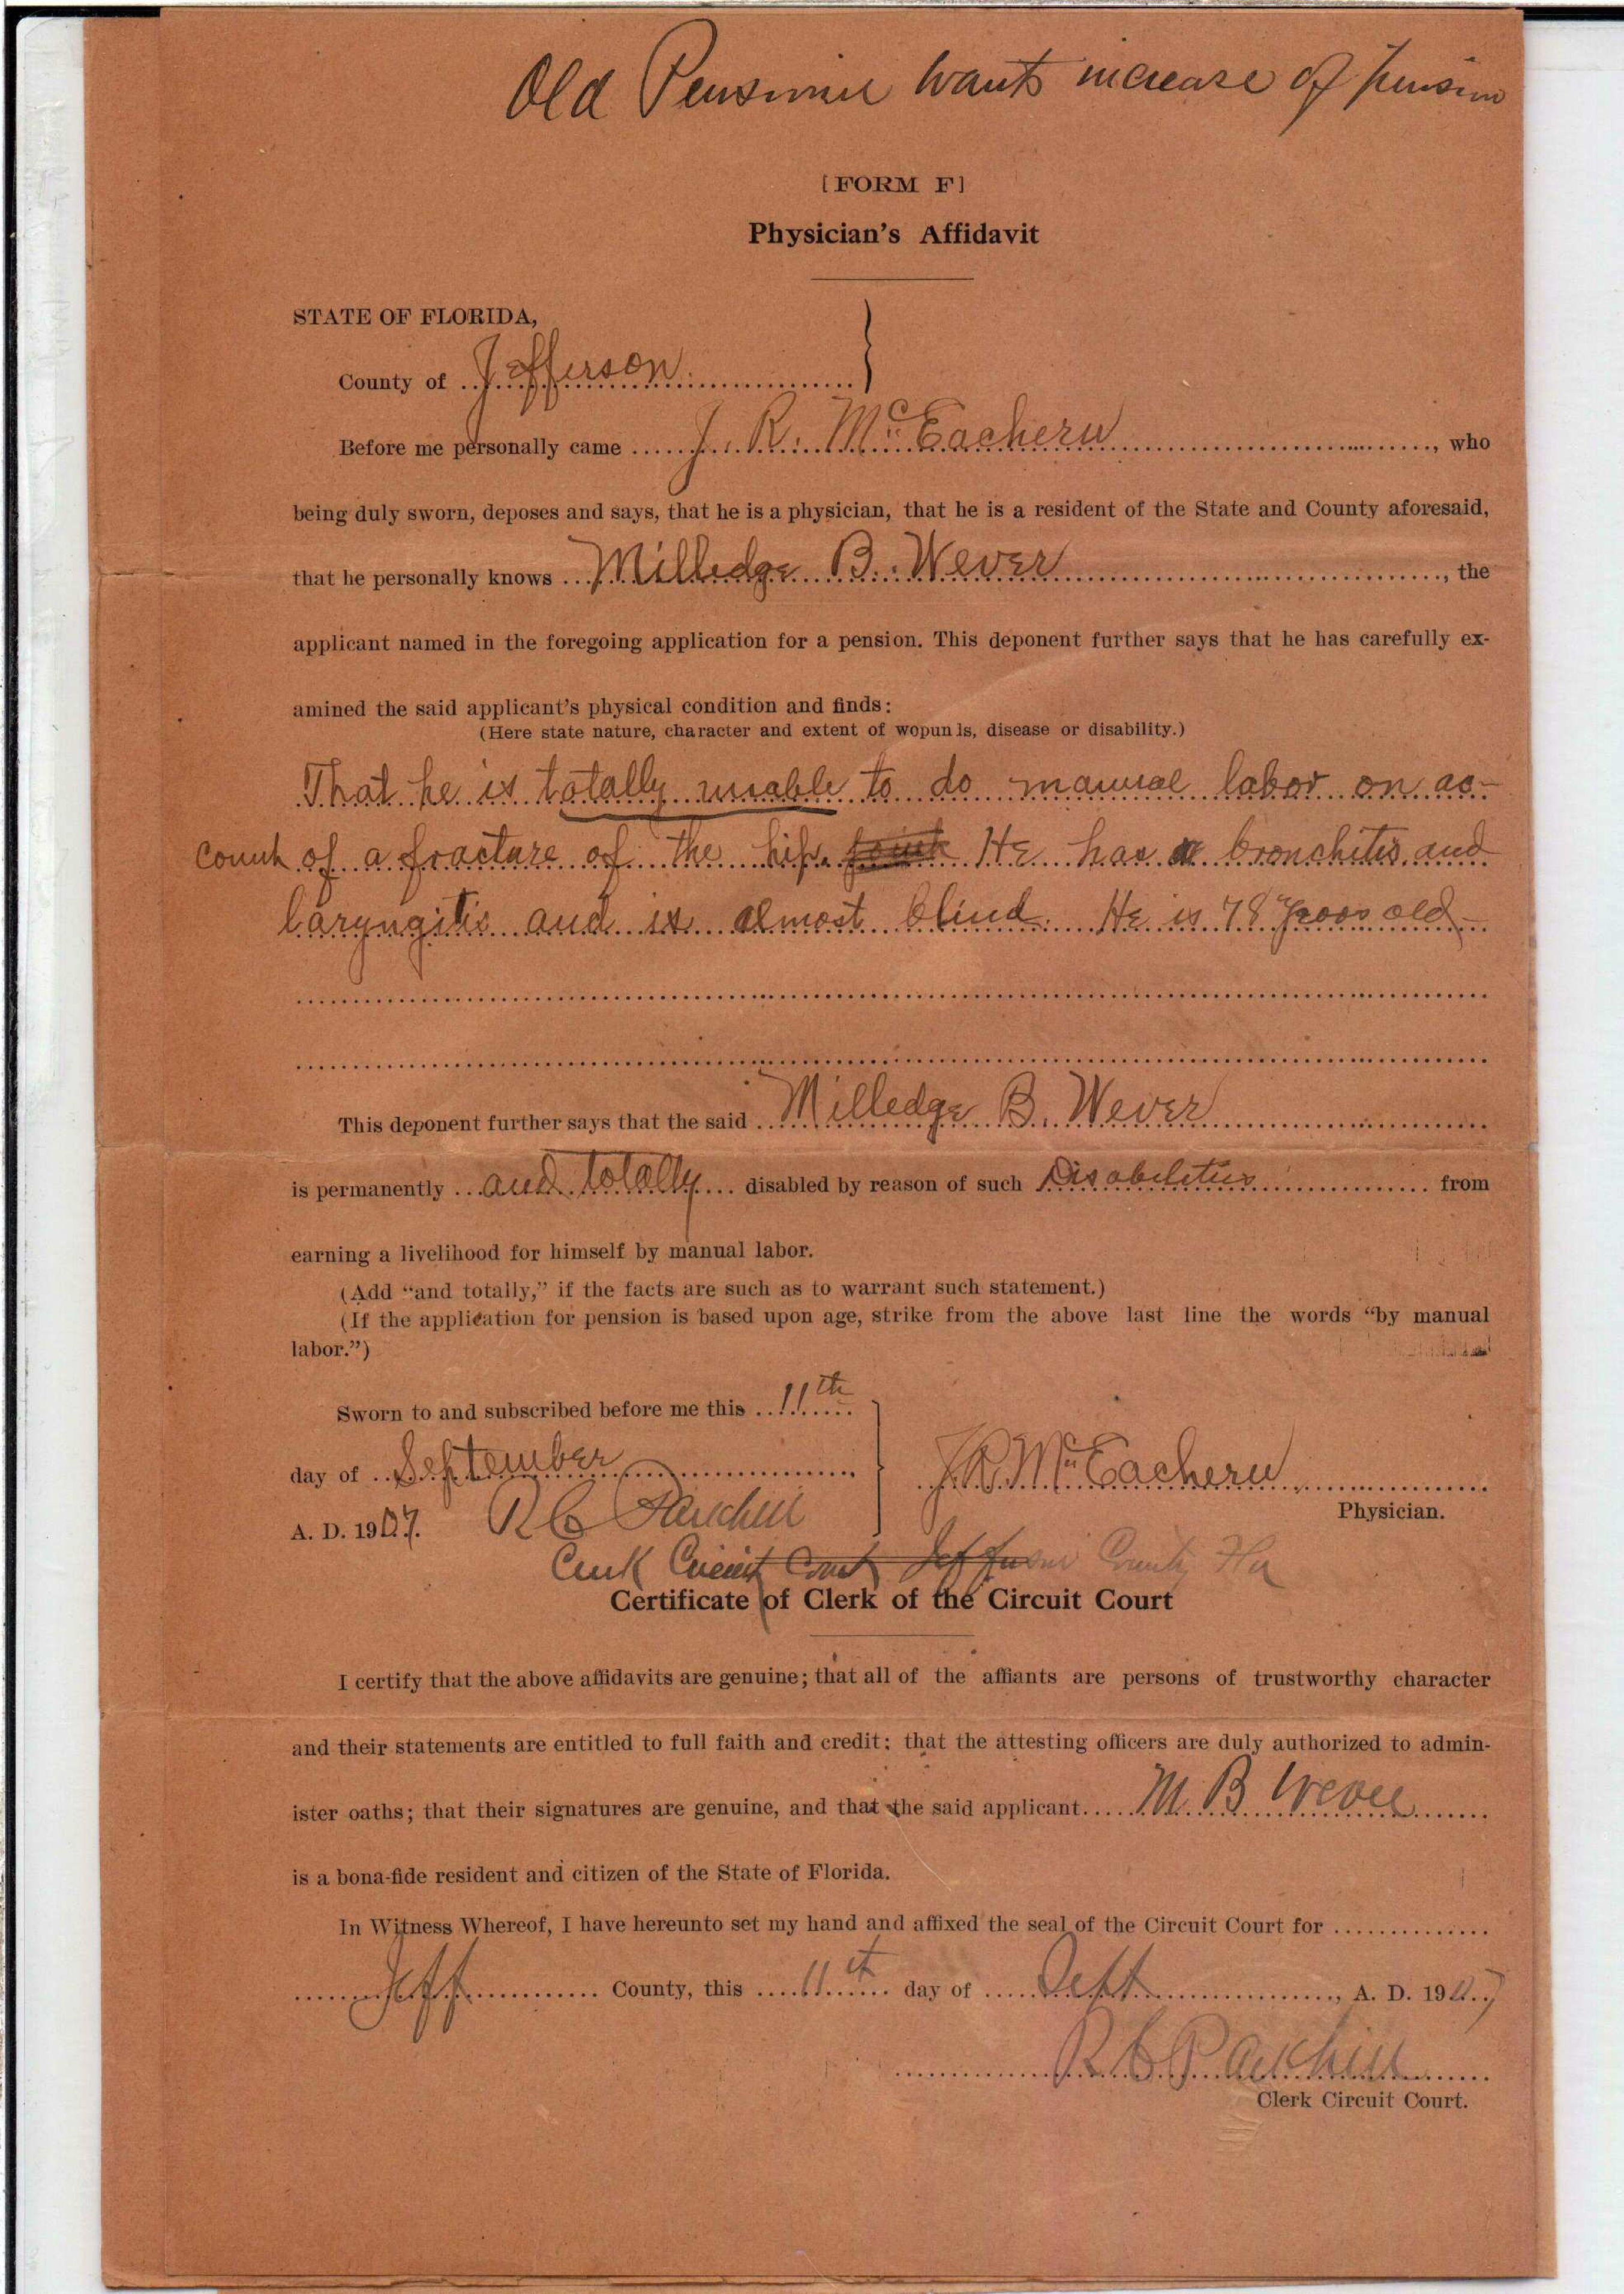 Old Pensioner wants increase of pension
[FORM F]
Physician's Affidavit
STATE OF FLORIDA,
County of Jefferson
Before me personally came J. R. McEachern, who
being duly sworn, deposes and says, that he is a physician, that he is a resident of the State and County aforesaid,
that he personally knows Milledge B. Wever, the
applicant named in the foregoing application for a pension. This deponent further says that he has carefully ex-
amined the said applicant's physical condition and finds:
(Here state nature, character and extent of wopunls, disease or disability.)
That he is totally unable to do manual labor on ac-
count of a fracture of the hip. He has bronchitis and
laryngitis and is almost blind. He is 78 years old
This deponent further says that the said Milledge B. Wever
is permanently and totally disabled by reason of such Disabilities from
earning a livelihood for himself by manual labor.
(Add "and totally," if the facts are such as to warrant such statement.)
(If the application for pension is based upon age, strike from the above last line the words "by manual
labor.")
Sworn to and subscribed before me this 11th
day of September
J. R. McEachern
Physician.
A. D. 1907. R C Parkhill
Clerk Circuit Court Jefferson County Fla
Certificate of Clerk of the Circuit Court
I certify that the above affidavits are genuine; that all of the affiants are persons of trustworthy character
and their statements are entitled to full faith and credit; that the attesting officers are duly authorized to admin-
ister oaths; that their signatures are genuine, and that the said applicant M. B Wever
is a bona-fide resident and citizen of the State of Florida.
In Witness Whereof, I have hereunto set my hand and affixed the seal of the Circuit Court for
Jeff County, this 11th day of Sept, A. D. 1907
R C Parkhill
Clerk Circuit Court.